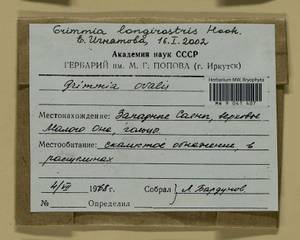 Grimmia longirostris Hook.
Е. Игнатова, 16.I.2002
Академия наук СССР
ГЕРБАРИЙ им. М. Г. ПОПОВА (г. Иркутск)
Herbarium MW, Bryophyta
MW 9041407
Grimmia ovalis
Местонахождение: Западные Саяны, верховье
Малого Она, гольцы
Местообитание: скалистое обнажение, в
расщелинах
4/VII 1968 г. Собрал Л. Бардунов
№ Определил